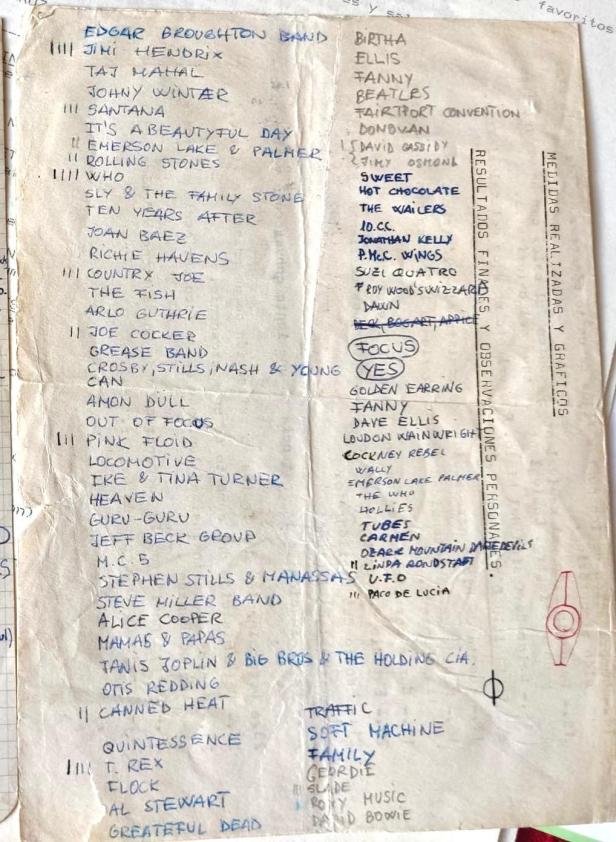 favoritos
EDGAR BROUGHTON BAND
|||| JIMI HENDRIX
TAJ MAHAL
JOHNY WINTER
||| SANTANA
IT'S A BEAUTYFUL DAY
|| EMERSON LAKE & PALMER
|| ROLLING STONES
|||| WHO
SLY & THE FAMILY STONE
TEN YEARS AFTER
JOAN BAEZ
RICHIE HAVENS
||| COUNTRY JOE
THE FISH
ARLO GUTHRIE
|| JOE COCKER
GREASE BAND
CROSBY, STILLS, NASH & YOUNG
CAN
AMON DÜLL
OUT OF FOCUS
||| PINK FLOID
LOCOMOTIVE
IKE & TINA TURNER
HEAVEN
GURU-GURU
JEFF BECK GROUP
M.C. 5
STEPHEN STILLS & MANASSAS
STEVE MILLER BAND
ALICE COOPER
MAMAS & PAPAS
JANIS JOPLIN & BIG BROS & THE HOLDING CIA.
OTIS REDDING
|| CANNED HEAT
QUINTESSENCE
|||| T. REX
FLOCK
AL STEWART
GREATEFUL DEAD
BIRTHA
ELLIS
FANNY
BEATLES
FAIRTPORT CONVENTION
DONOVAN
DAVID CASSIDY
JIMY OSMOND
SWEET
HOT CHOCOLATE
THE WAILERS
10.CC.
JONATHAN KELLY
P.McC. WINGS
SUZI QUATRO
ROY WOOD'S WIZZARD
DAWN
BECK, BOGART, APPICE
FOCUS
YES
GOLDEN EARRING
FANNY
DAVE ELLIS
LOUDON WAINWRIGHT
COCKNEY REBEL
WALLY
EMERSON LAKE PALMER
THE WHO
HOLLIES
TUBES
CARMEN
OZARK MOUNTAIN DAREDEVILS
|| LINDA RONDSTADT
U.F.O
||| PACO DE LUCIA
TRAFFIC
SOFT MACHINE
FAMILY
GEORDIE
||| SLADE
ROXY MUSIC
DAVID BOWIE
RESULTADOS FINALES Y OBSERVACIONES PERSONALES.
MEDIDAS REALIZADAS Y GRAFICOS